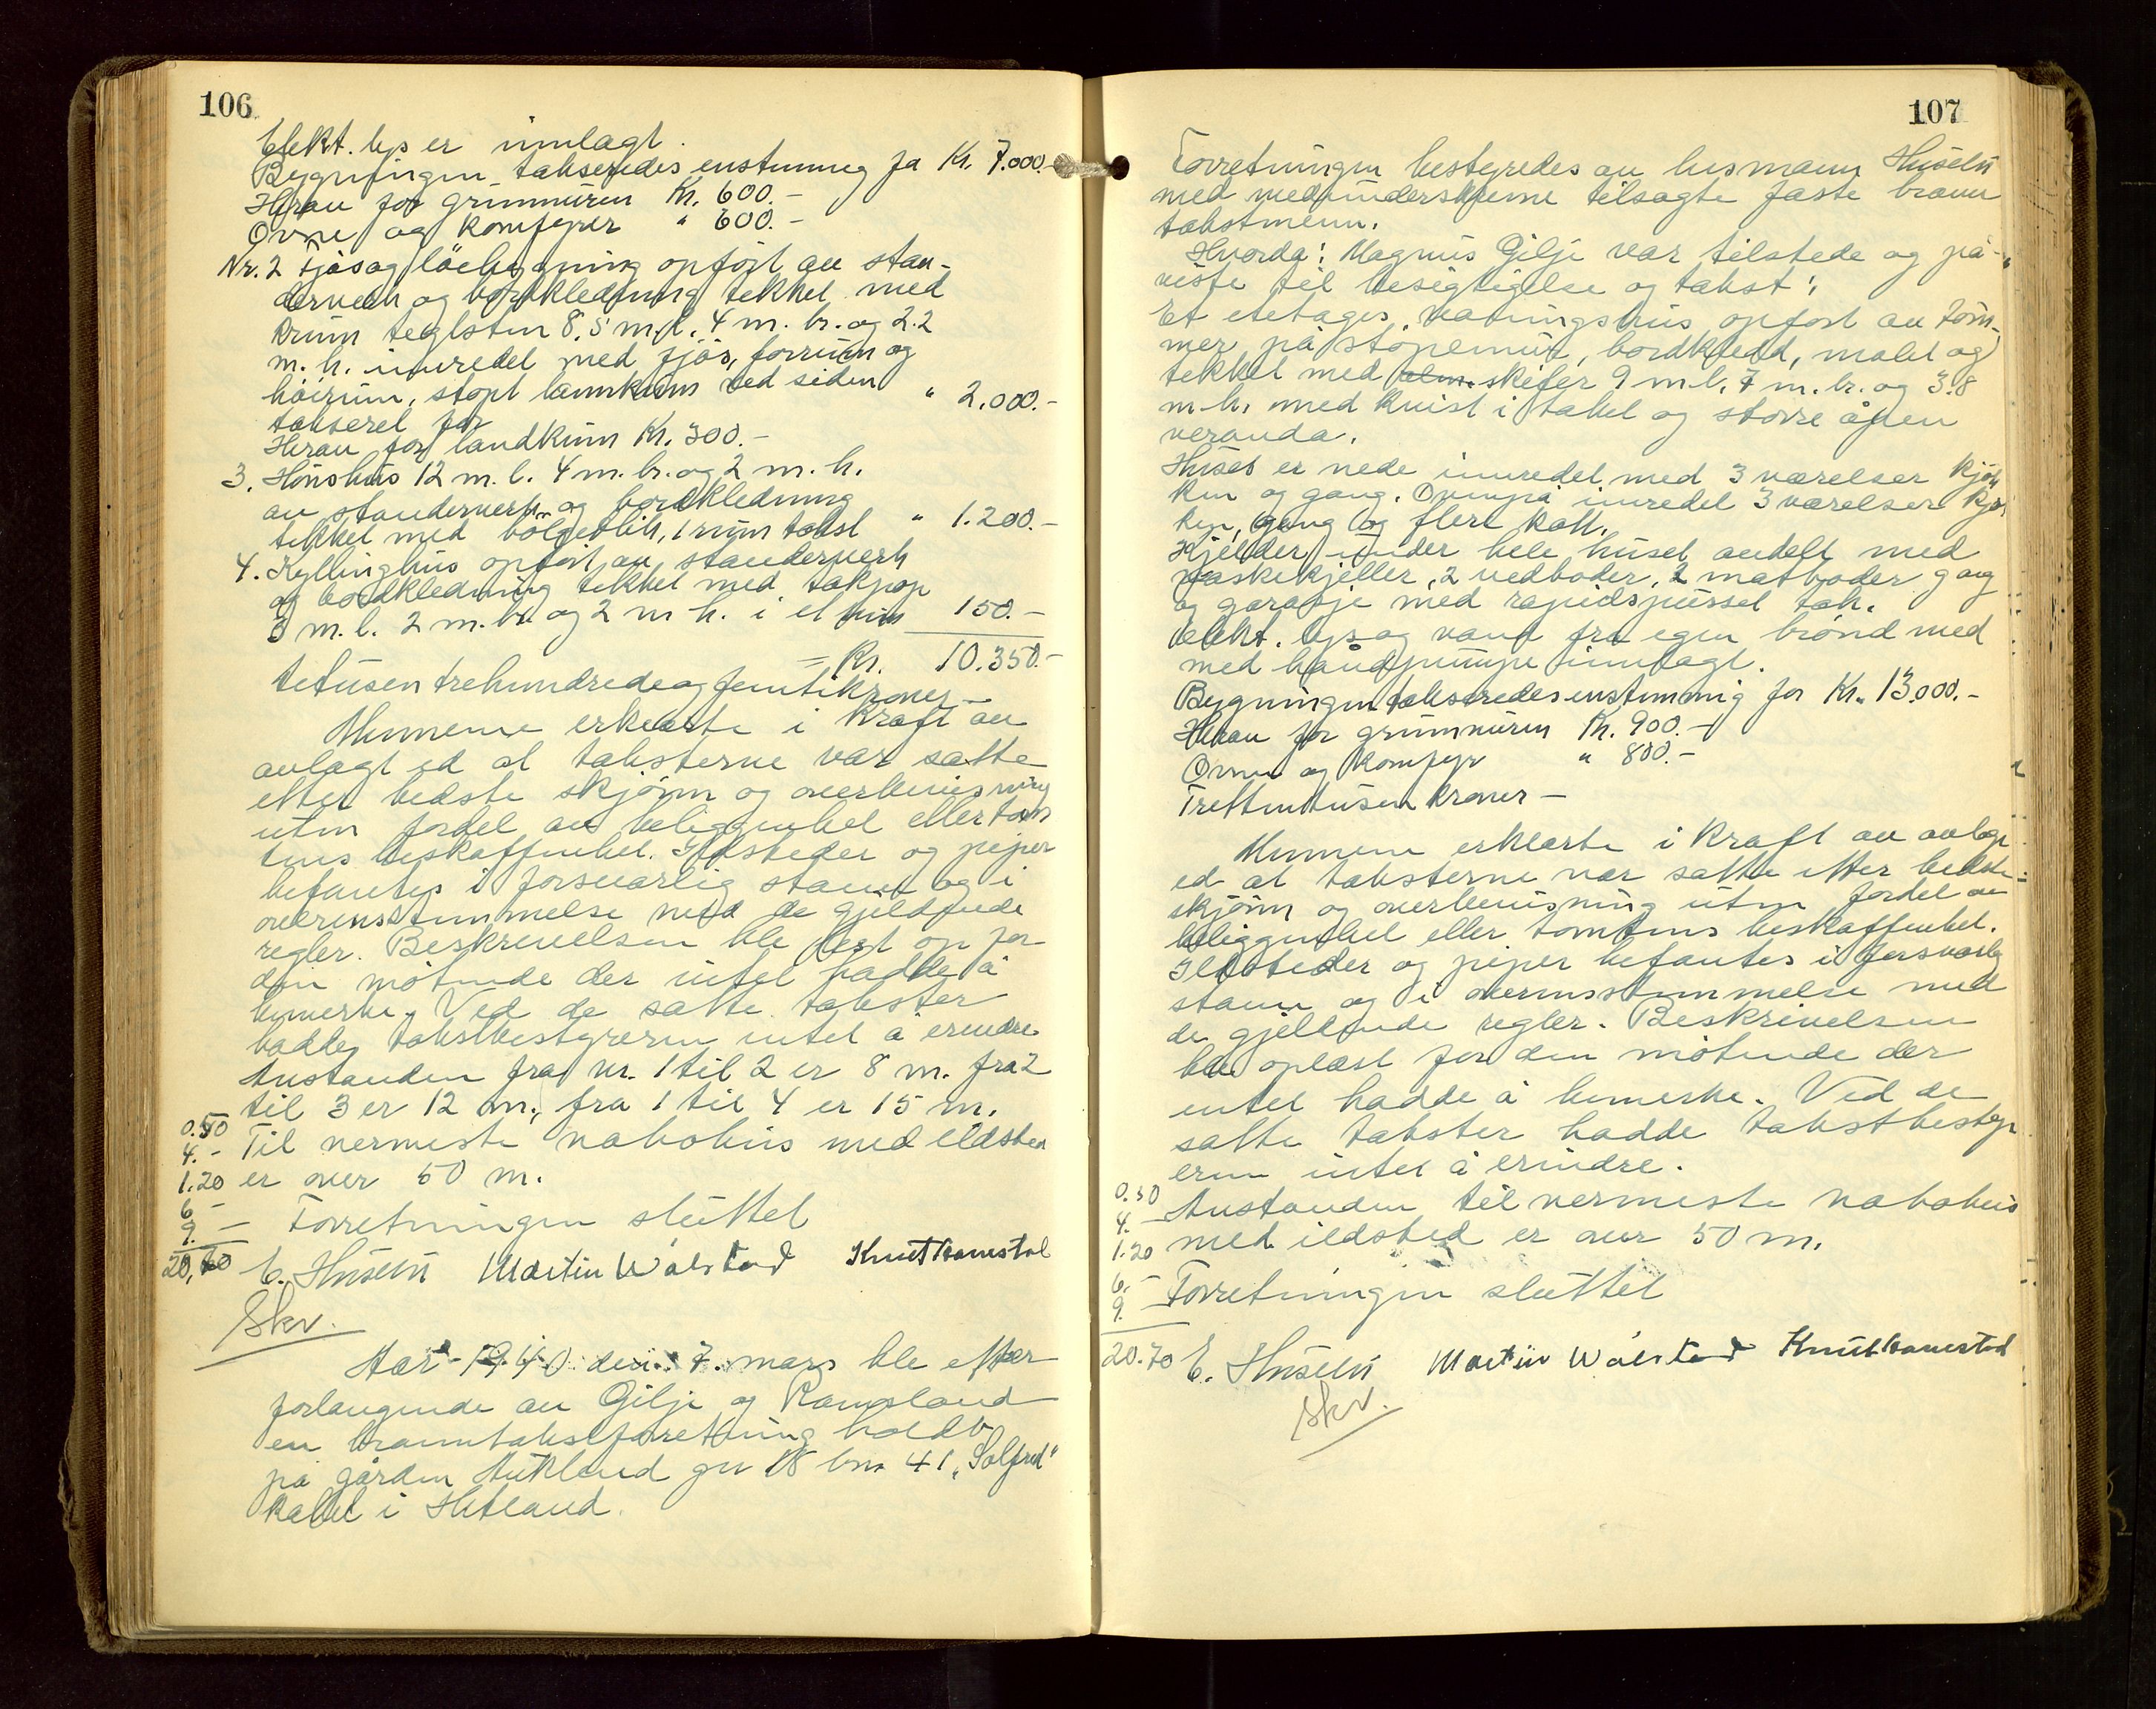 106
Elekt. lys er innlagt.
Bygningen takseredes enstemmig for Kr. 7.000.-
Herav for grunnmuren Kr. 600.-
Ovne og komfyrer " 600.-
Nr. 2 Fjøs og løebygning opført av stan-
derverk og bordkledning tekket med
krum teglsten 8,5 m. l. 4 m. br. og 2.2
m. h. innredet med fjøs, forrum og
høirum, støpt lannkum ved siden
taksert for " 2.000.-
Herav for landkum Kr. 300.-
3. Hønshus 12 m. l. 4 m. br. og 2 m. h.
av standerverk og bordkledning
tekket med bølgeblik, 1 rum takst " 1.200.-
4. Kyllinghus opført av standerverk
og bordkledning tekket med takpap
3 m. l. 2 m. br. og 2 m h. i et rum 150.-
= Kr. 10.350.-
titusen trehundrede og femtikroner -
Mennene erklærte i kraft av
avlagt ed at taksterne var satte
efter bedste skjønn og overbevisning
uten fordel av beliggenhet eller tom
tens beskaffenhet. Ildsteder og piper
befantes i forsvarlig stann og i
overensstemmelse med de gjeldende
regler. Beskrivelsen ble lest op for
den møtende der intet hadde å
bemerke. Ved de satte takster
hadde takstbestyreren intet å erindre
Avstanden fra nr. 1 til 2 er 8 m. fra 2
til 3 er 12 m., fra 1 til 4 er 15 m.
0.50 Til nermeste nabohus med ildsted
4.-
1.20 er over 50 m.
6 -
9. - Forretningen sluttet
20,70 E. Husebø Martin Wålstad Knut Ramstad
Skr.
Aar 1940 den 7. mars ble efter
forlangende av Gilje og Ramsland
en branntakstforretning holdt
på gården Aukland gnr 18 bnr 41 "Solfred"
kaldet i Hetland.
107
Forretningen bestyredes av lensmann Husebø
med medunderskrevne tilsagte faste brann
takstmenn.
Hvorda: Magnus Gilje var tilstede og på-
viste til besigtigelse og takst:
Et etetages våningshus opført av tøm-
mer på støpemur, bordkledd, malet og
tekket med skifer 9 m. l. 7 m. br. og 3.8
m. h. med kvist i taket og større åpen
veranda.
Huset er nede innredet med 3 værelser kjøk
ken og gang. Ovenpå innredet 3 værelser kjø
ken, gang og flere kott.
Kjelder under hele huset avdelt med
vaskekjeller, 2 vedboder, 2 matboder gang
og garasje med rapidspusset tak.
Elekt. lys og vann fra egen brønd med
med håndpumpe innlagt.
Bygningen takseredes enstemmig for Kr. 13.000.-
Herav for grunnmuren Kr. 900.-
Ovne og komfyr " 800.-
Trettentusen kroner -
Mennene erklærte i kraft av avlagt
ed at taksterne var satte efter bedste
skjønn og overbevisning uten fordel av
beliggenhet eller tomtens beskaffenhet.
Ildsteder og piper befantes i forsvarlig
stann og i overensstemmelse med
de gjeldende regler. Beskrivelsen
ble oplæst for den møtende der
intet hadde å bemerke. Ved de
satte takster hadde takstbestyr
eren intet å erindre.
0.50 Avstanden til nermeste nabohus
4. -
1.20 med ildsted er over 50 m.
6. -
9. - Forretningen sluttet
20.70 E. Husebø Martin Wålstad Knut Ramstad
Skr.